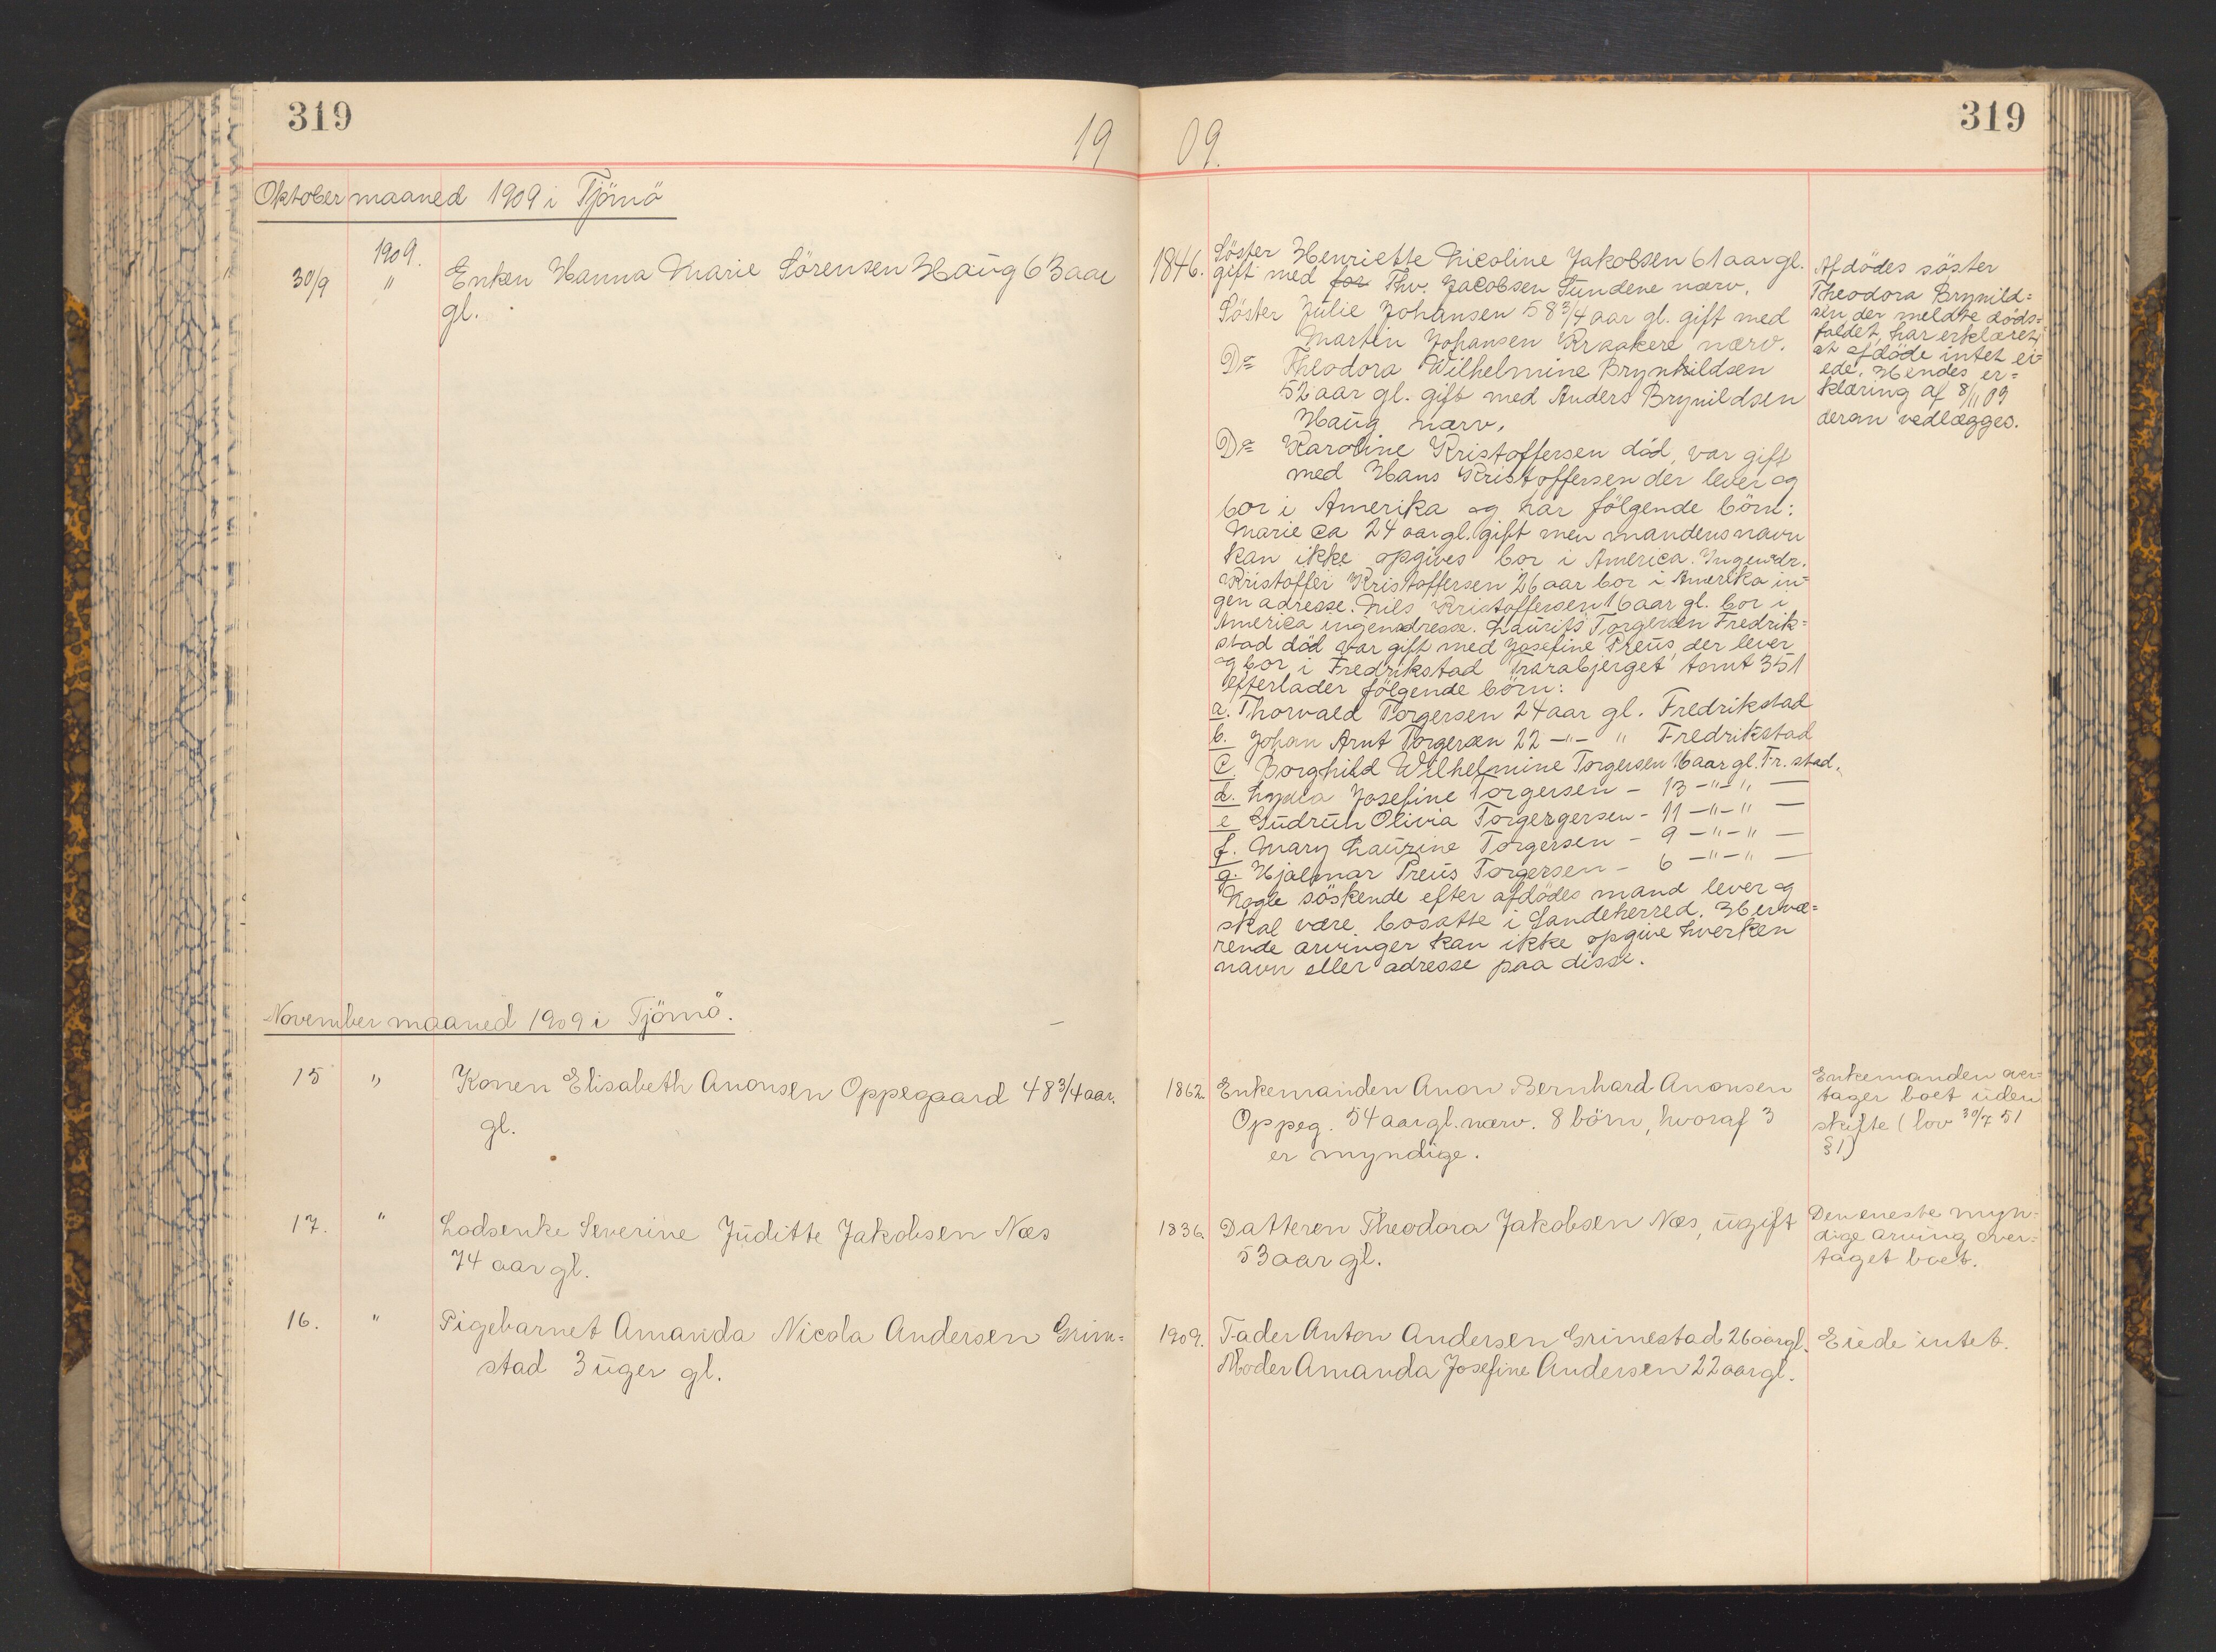 319
19
Oktober maaned 1909 i Tjömö
1909.
30/9 " Enken Hanna Marie Sörensen Haug 63 aar
gl.
November maaned 1909 i Tjömö.
15 " Konen Elisabeth Anonsen Oppegaard 48 3/4 aar.
gl.
17. " Lodsenke Severine Juditte Jakobsen Næs
74 aar gl.
16. " Pigebarnet Amanda Nicola Andersen Grim=
stad 3 uger gl.
319
09.
1846. Söster Henriette Nicoline Jakobsen 61 aar gl.
gift med for Thv. Jacobsen Sundene nærv.
Söster Julie Johansen 58 3/4 aar gl. gift med
Martin Johansen Kraakere nærv.
Do Theodora Wilhelmine Brynhildsen
52 aar gl. gift med Anders Brynildsen
Haug nærv.
Do Karoline Kristoffersen död, var gift
med Hans Kristoffersen der lever og
bor i Amerika og har fölgende börn:
Marie ca 24 aar gl. gift men mandens navn
kan ikke opgives bor i America. Ingen adr.
Kristoffer Kristoffersen 26 aar bor i Amerika in=
gen adresse. Nils Kristoffersen 16 aar gl. bor i
America ingen adresse. Laurits Torgersen Fredrik=
stad död var gift med Josefine Preus, der lever
og bor i Fredrikstad Trarabjerget tomt 351
efterlader fölgende börn:
a. Thorvald Torgersen 24 aar gl. Fredrikstad
b. Johan Arnt Torgersen 22 -"- " Fredrikstad
c. Borghild Wilhelmine Torgersen 16 aar gl. Fr.stad.
d. Lydia Josefine Torgersen - 13 -"-" —
e Gudrun Olivia Torgergersen - 11 -"-" —
f. Mary Laurine Torgersen - 9 -"-" —
g. Hjalmar Preus Torgersen - 6 -"-" —
Nogle söskende efter afdödes mand lever og
skal være bosatte i Sandeherred. Hervæ=
rende arvinger kan ikke opgive hverken
navn eller adresse paa disse.
Afdödes söster
Theodora Brynild=
sen der meldte döds=
faldet, har erklæret,
at afdöde intet ei=
ede. Hendes er=
klæring af 8/11 09
derom vedlægges.
1862. Enkemanden Anon Bernhard Anonsen
Oppeg. 54 aar gl. nærv. 8 börn, hvoraf 3
er myndige.
Enkemanden over=
tager boet uden
skifte (lov 30/7 51
§1)
1836 Datteren Theodora Jakobsen Næs, ugift
53 aar gl.
Den eneste myn=
dige arving over=
taget boet.
1909. Fader Anton Andersen Grimestad 26 aar gl.
Moder Amanda Josefine Andersen 22 aar gl.
Eiede intet.